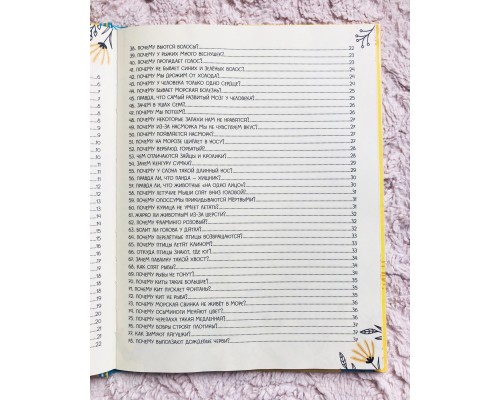 38. ПОЧЕМУ ВЬЮТСЯ ВОЛОСЫ? 22
39. ПОЧЕМУ У РЫЖИХ МНОГО ВЕСНУШЕК? 23
40. ПОЧЕМУ ПРОПАДАЕТ ГОЛОС? 23
41. ПОЧЕМУ НЕ БЫВАЕТ СИНИХ И ЗЕЛЁНЫХ ВОЛОС? 24
42. ПОЧЕМУ МЫ ДРОЖИМ ОТ ХОЛОДА? 24
43. ПОЧЕМУ У ЧЕЛОВЕКА ТОЛЬКО ОДНО СЕРДЦЕ? 24
44. ПОЧЕМУ БЫВАЕТ МОРСКАЯ БОЛЕЗНЬ?
45. ПРАВДА, ЧТО САМЫЙ РАЗВИТЫЙ МОЗГ У ЧЕЛОВЕКА? 25
46. ЗАЧЕМ В УШАХ СЕРА? 25
47. ПОЧЕМУ МЫ ПОТЕЕМ?
48. ПОЧЕМУ НЕКОТОРЫЕ ЗАПАХИ НАМ НЕ НРАВЯТСЯ?
49. ПОЧЕМУ ИЗ-ЗА НАСМОРКА МЫ НЕ ЧУВСТВУЕМ ВКУС? 27
50. ПОЧЕМУ ПОЯВЛЯЕТСЯ НАСМОРК?
51. ПОЧЕМУ НА МОРОЗЕ ЩИПЛЕТ В НОСУ? 28
52. ПОЧЕМУ ВЕРБЛЮД ГОРБАТЫЙ? 28
53. ЧЕМ ОТЛИЧАЮТСЯ ЗАЙЦЫ И КРОЛИКИ?
54. ЗАЧЕМ КЕНГУРУ СУМКА? 29
55. ПОЧЕМУ У СЛОНА ТАКОЙ ДЛИННЫЙ НОС?
56. ПРАВДА ЛИ, ЧТО ПАНДА – ХИЩНИК? 30
57. ПРАВДА ЛИ, ЧТО ЖИВОТНЫЕ «НА ОДНО ЛИЦО»?
58. ПОЧЕМУ ЛЕТУЧИЕ МЫШИ СПЯТ ВНИЗ ГОЛОВОЙ? 31
59. ПОЧЕМУ ОПОССУМЫ ПРИКИДЫВАЮТСЯ МЁРТВЫМИ? 31
60. ПОЧЕМУ КУРИЦА НЕ УМЕЕТ ЛЕТАТЬ?
61. ЖАРКО ЛИ ЖИВОТНЫМ ИЗ-ЗА ШЕРСТИ? 32
62. ПОЧЕМУ ФЛАМИНГО РОЗОВЫЙ? 32
63. БОЛИТ ЛИ ГОЛОВА У ДЯТЛА?
64. ПОЧЕМУ ПЕРЕЛЁТНЫЕ ПТИЦЫ ВОЗВРАЩАЮТСЯ? 33
65. ПОЧЕМУ ПТИЦЫ ЛЕТЯТ КЛИНОМ? 33
66. ОТКУДА ПТИЦЫ ЗНАЮТ, ГДЕ ЮГ? 33
67. ЗАЧЕМ ПАВЛИНУ ТАКОЙ ХВОСТ?
68. КАК СПЯТ РЫБЫ? 34
69. ПОЧЕМУ РЫБЫ НЕ ТОНУТ?
70. ПОЧЕМУ КИТЫ ТАКИЕ БОЛЬШИЕ? 35
71. ПОЧЕМУ КИТ ПУСКАЕТ ФОНТАНЫ? 35
72. ПОЧЕМУ КИТ НЕ РЫБА?
73. ПОЧЕМУ МОРСКАЯ СВИНКА НЕ ЖИВЁТ В МОРЕ? 36
74. ПОЧЕМУ ОСЬМИНОГИ МЕНЯЮТ ЦВЕТ? 36
75. ПОЧЕМУ ЧЕРЕПАХА ТАКАЯ МЕДЛЕННАЯ? 36
76. ПОЧЕМУ БОБРЫ СТРОЯТ ПЛОТИНЫ?
77. КАК ЗИМУЮТ ЛЯГУШКИ? 37
78. ПОЧЕМУ ВЫПОЛЗАЮТ ДОЖДЕВЫЕ ЧЕРВИ? 37